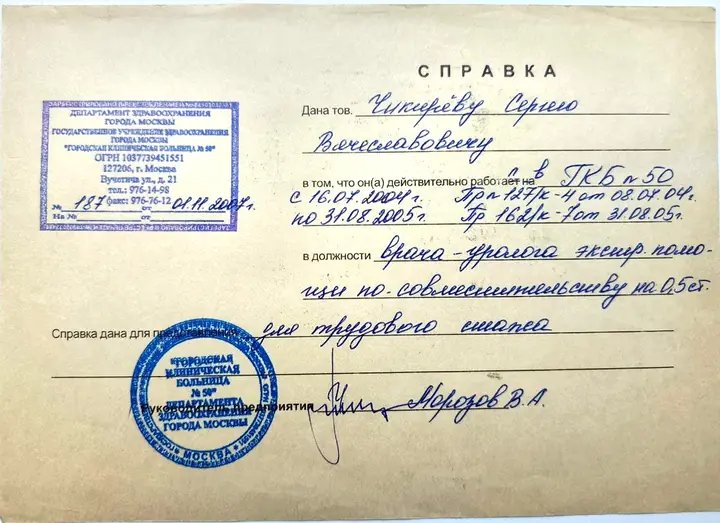 СПРАВКА
ДЕПАРТАМЕНТ ЗДРАВООХРАНЕНИЯ
ГОРОДА МОСКВЫ
ГОСУДАРСТВЕННОЕ УЧРЕЖДЕНИЕ ЗДРАВООХРАНЕНИЯ
ГОРОДА МОСКВЫ
"ГОРОДСКАЯ КЛИНИЧЕСКАЯ БОЛЬНИЦА № 50"
ОГРН 1037739451551
127206, г. Москва
Вучетича ул., д. 21
тел.: 976-14-98
факс: 976-76-12
№ 187 от 01.11.2007г.
На № от
Дана тов. Чикирёву Сергею
Вячеславовичу
в том, что он(а) действительно работает на в ГКБ №50
с 16.07.2004г. Пр № 127/к-4 от 08.07.04г.
по 31.08.2005г. Пр 162/к-7 от 31.08.05г.
в должности врача-уролога экстр. помо-
щи по совместительству на 0,5 ст.
Справка дана для представления для трудового стажа
"ГОРОДСКАЯ
КЛИНИЧЕСКАЯ
БОЛЬНИЦА
№ 50"
ДЕПАРТАМЕНТА
ЗДРАВООХРАНЕНИЯ
ГОРОДА МОСКВЫ
* МОСКВА *
Руководитель предприятия Морозов В.А.